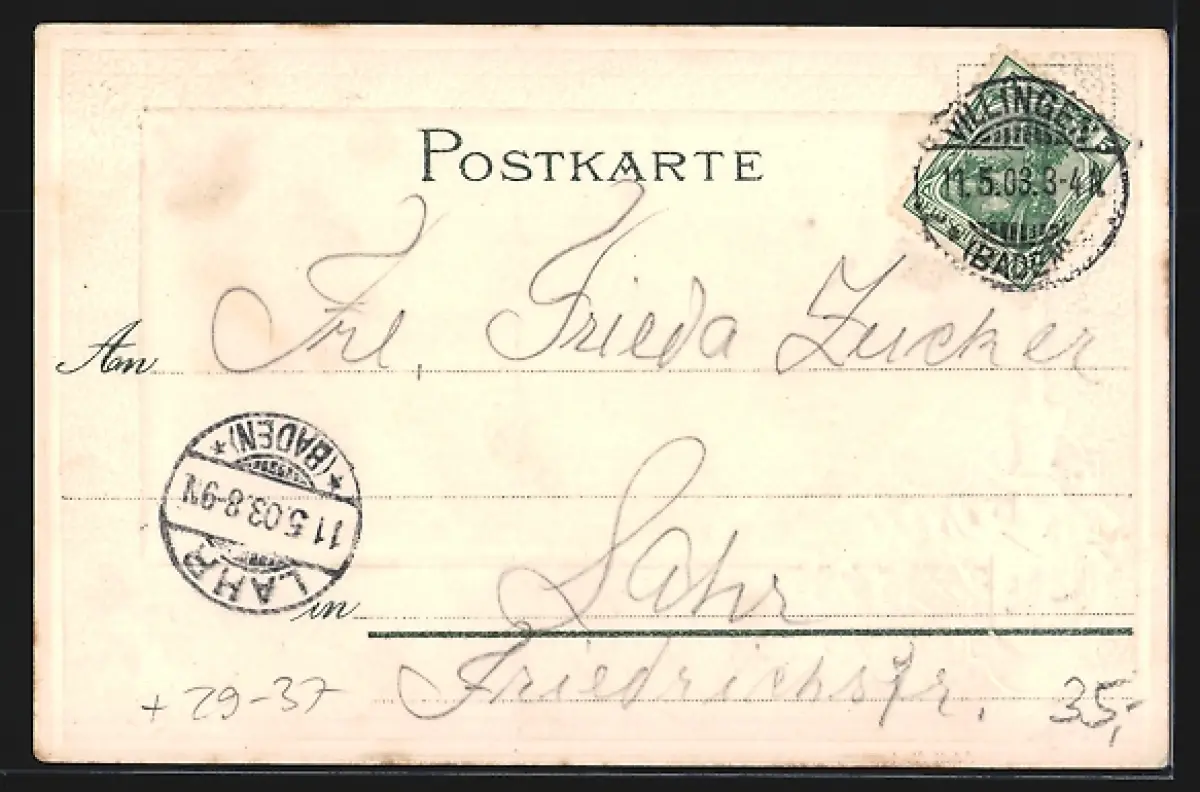 POSTKARTE
VILLINGEN
11.5.03.3-4N.
(BADEN)
An Frl. Frieda Zucker
*(BADEN)*
11.5.03.8-9N.
LAHR
in Lahr
Friedrichstr.
+ 29-37
35,-